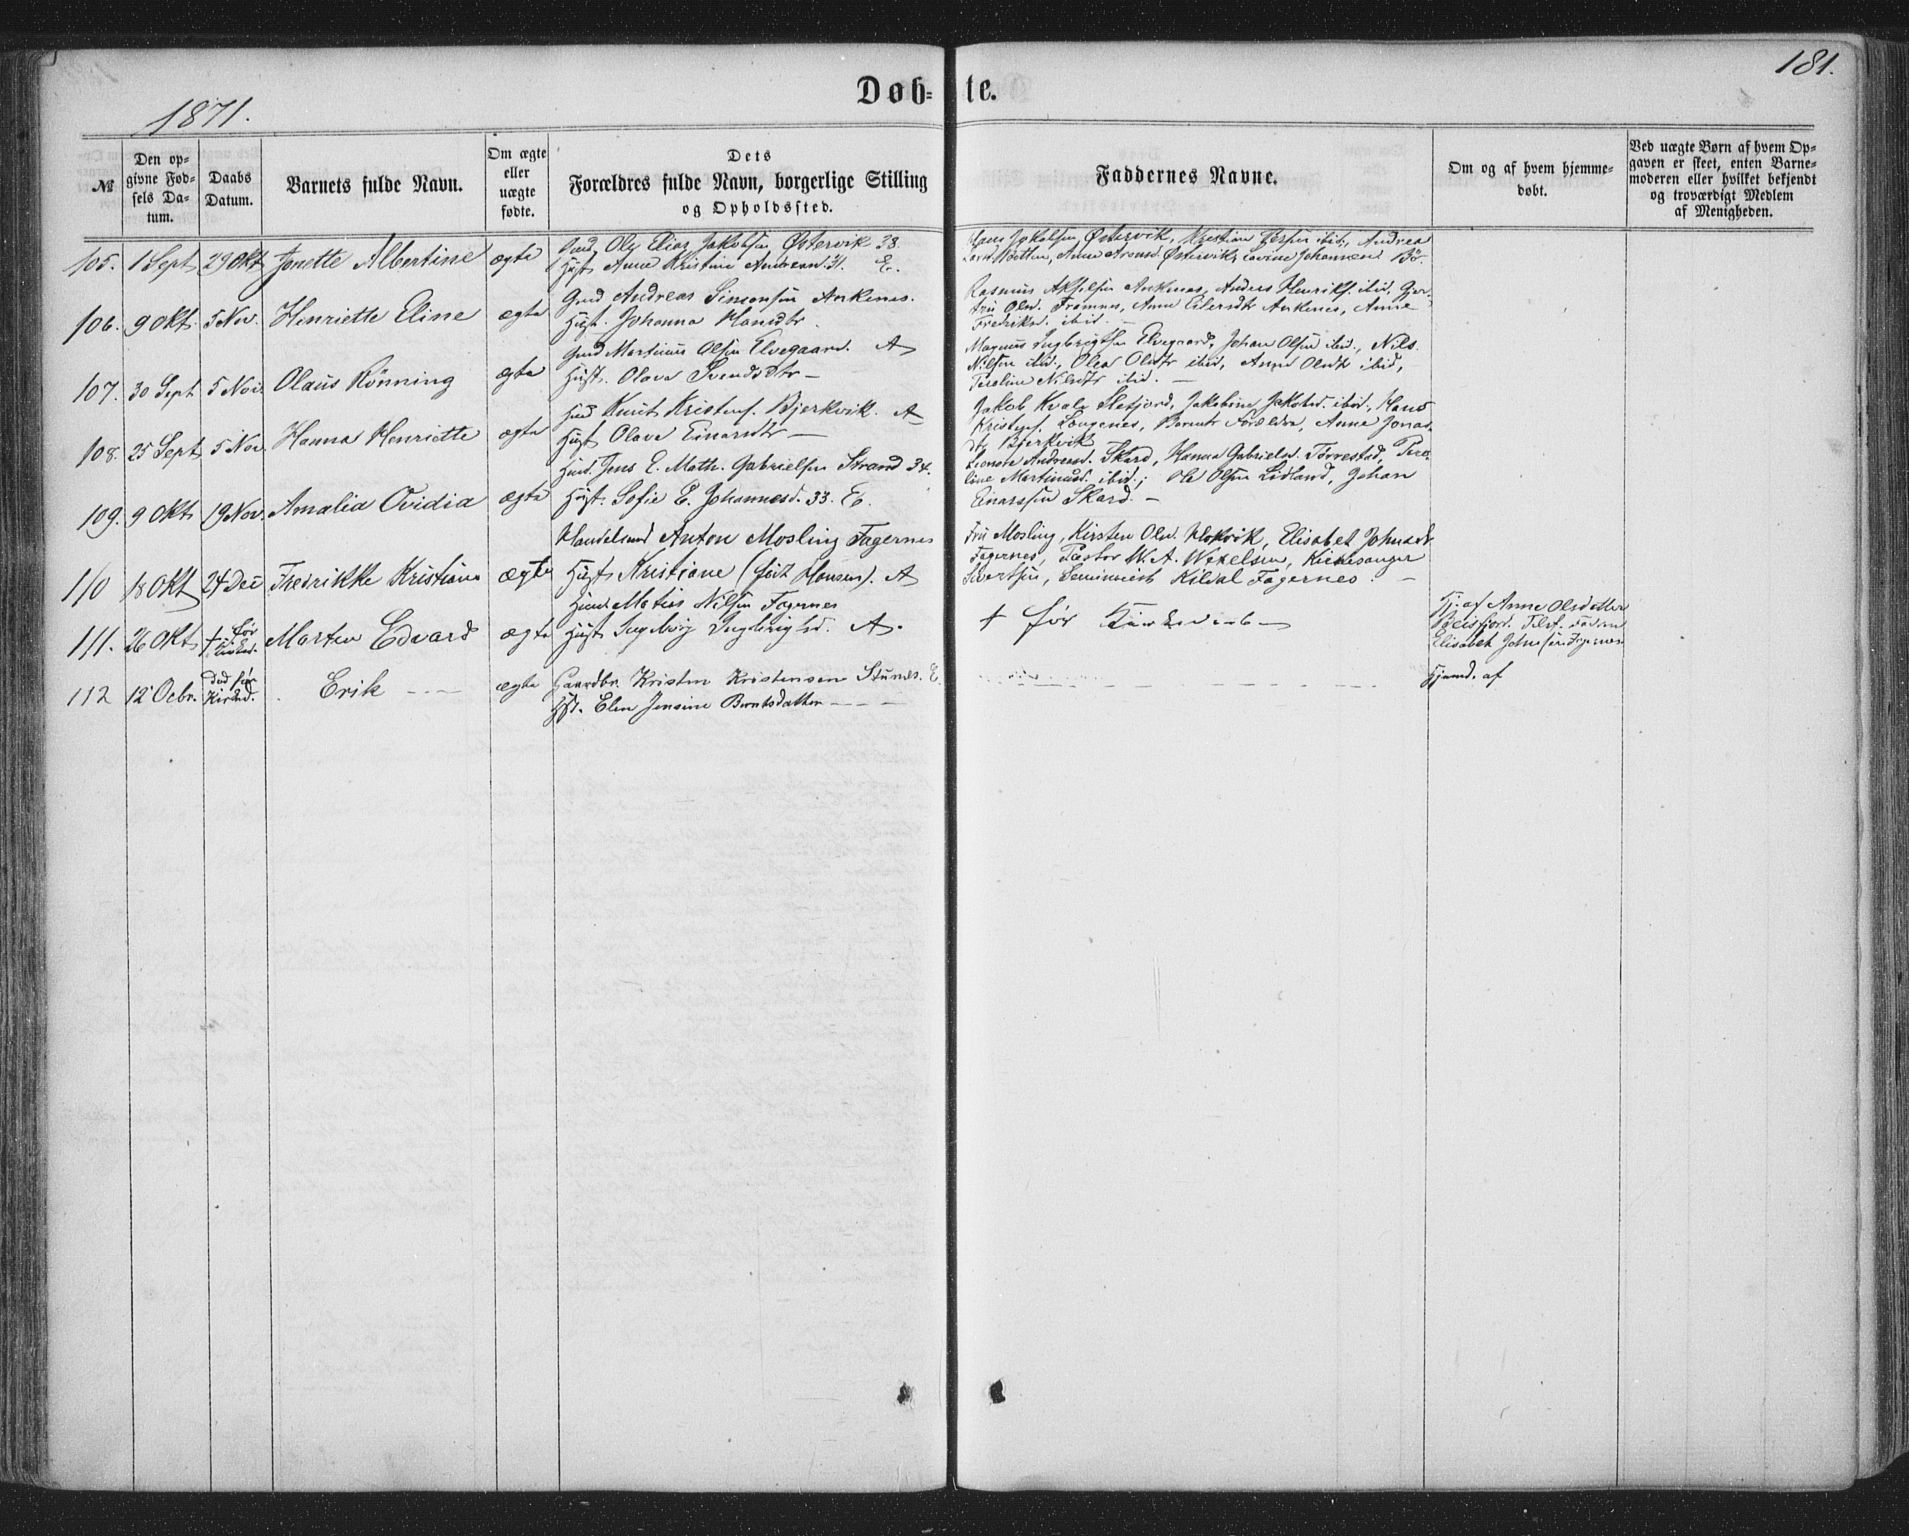 181.
Døb=te.
1871.
№
Den op=
givne Fød=
sels Da=
tum.
Daabs
Datum.
Barnets fulde Navn.
Om ægte
eller
uægte
fødte.
Dets
Forældres fulde Navn, borgerlige Stilling
og Opholdssted.
Faddernes Navne.
Om og af hvem hjemme=
døbt.
Ved uægte Børn af hvem Op=
gaven er skeet, enten Barne=
moderen eller hvilket bekjendt
og troværdigt Medlem
af Menigheden.
105. 1 Sept 29 Okt Jonette Albertine ægte
Ole Elias Jakobsen Østervik 38.
Hust. Anne Kristine Andreasd. 31. E.
Hans Jakobsen Østervik, Kristian ibid, Andrea
Østervik, Johannesd. Bø.
106. 9 Okt. 5 Nov. Henriette Eline ægte
Gmd Andreas Simonsen Ankenes.
Hust. Johanna Hansdtr.
Rasmus Akselsen Ankenes, Anders Henriks. ibid, Gjer=
tru Olsd. Framnes, Anne Eilersdtr Ankenes, Anne
Fredriksd. ibid. —
107. 30 Sept 5 Nov. Olaus Rönning ægte
Gmd Martinus Olsen Elvegaard. A
Hust. Olava Svendsdtr —
Magnus Ingbrigtsen Elvegaard, Johan Olsen ibid., Nils
Nilsen ibid, Olea Olsdtr ibid, Anne Olsdtr ibid,
Peroline Nilsdtr ibid. —
108. 25 Sept 5 Nov. Hanna Henriette ægte
Knut Kristens. Bjerkvik. A
Hust Olava Einarsdtr —
Jakob Kvale Stefjord, Jakobine Jakobsd. ibid., Hans
Kristens. Längenes, Barnets Forældre, Anne Jonas
dtr Bjerkvik
109. 9 Okt 19 Nov. Amalia Ovidia ægte
Husmd. Jens E. Math. Gabrielsen Strand 34.
Hust. Sofie E. Johannesd. 33. E.
Leonore Andreasd. Skard, Hanna Gabrielsd. Törrestad, Pero=
line Martinusd. ibid.; Ole Olsen Lidland, Johan
Einarssen Skard. —
110 18 Okt 24 Dec Fredrikke Kristiane ægte
Handelsmd Anton Mosling Fagernes
Hust. Kristiane (født Hansen). A
Fru Mosling, Kirsten Olsd. Elisabet Johnsdtr
Fagernes, Pastor W. A. Wexelsen, Kirkesanger
Sivertsen, Seminarist Kildal Fagernes. —
111. 26 Okt. † før Kirked. Morten Edvard ægte
Matias Nilsen Fagernes
Hust Ingeborg Ingbrigtsd. A.
† før
Hj. af Anne Olsdatter
Beisfjord. Tilst. Faderen
Elisabet Johnsen Fagernes
112 12 Ocbr. død før Kirked. Erik — — ægte
Gaardbr. Kristen Kristensen Stunes. E
Hst. Elen Jensine Berntsdatter — — —
Hjemd. af